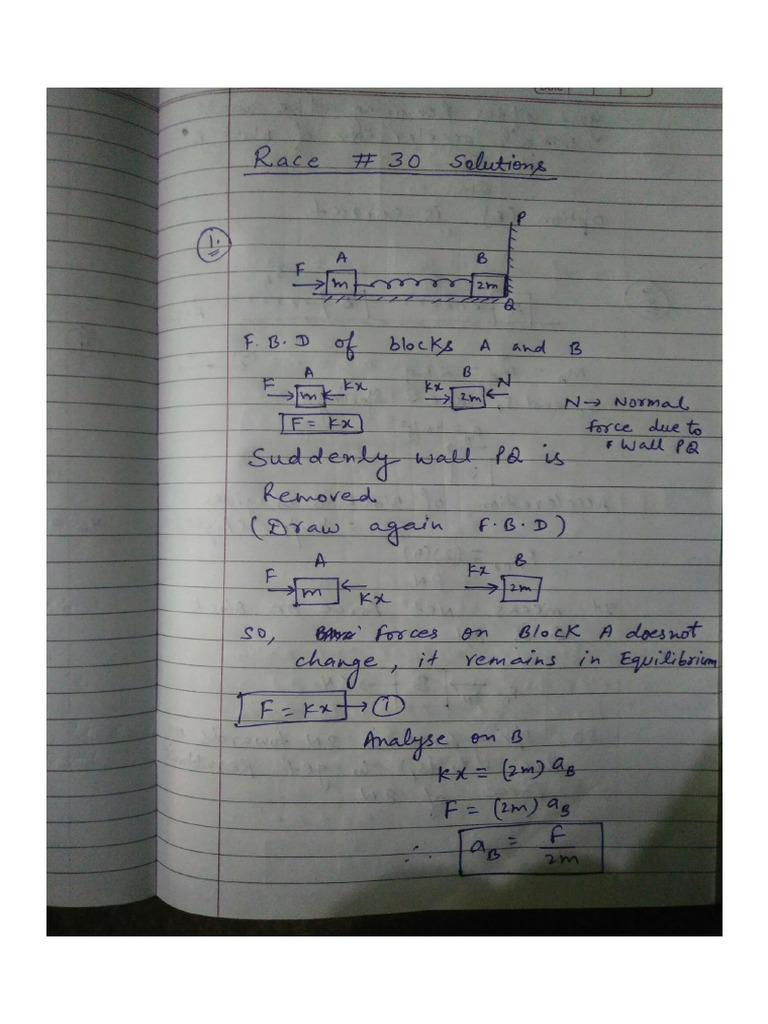 Race # 30 Solutions
1.
P
A B
F m 2m
Q
F.B.D of blocks A and B
A B
F m Kx Kx 2m N
F = Kx
N → Normal
force due to
wall PQ
Suddenly wall PQ is
Removed
(Draw again F.B.D)
A B
F m Kx Kx 2m
SO, forces on Block A doesnot
change, it remains in Equilibrium
F = Kx → 1
Analyse on B
Kx = (2m) aB
F = (2m) aB
∴ aB = F/2m